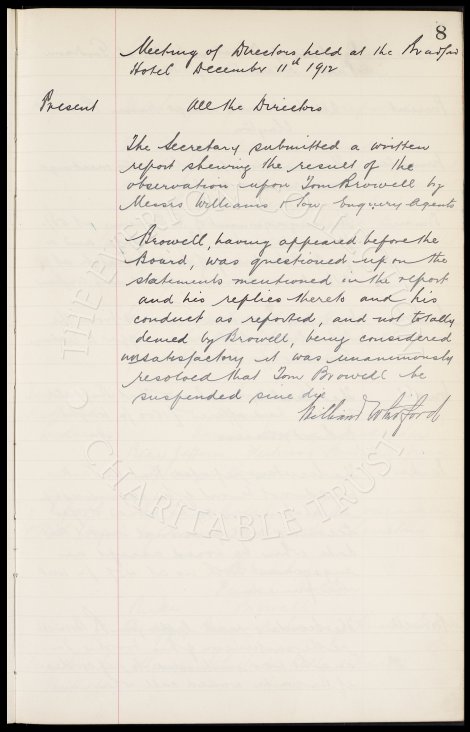 8
Meeting of Directors held at the Bradford
Hotel December 11th 1912
Present All the Directors
The Secretary submitted a written
report shewing the result of the
observation upon Tom Browell by
Messrs Williams & Son, Enquiry Agents
Browell, having appeared before the
Board, was questioned upon the
statements mentioned in the report
and his replies thereto and his
conduct as reported, and not totally
denied by Browell, being considered
unsatisfactory it was unanimously
resolved that Tom Browell be
suspended sine die
William Whitford
THE EVERTON COLLECTION
CHARITABLE TRUST